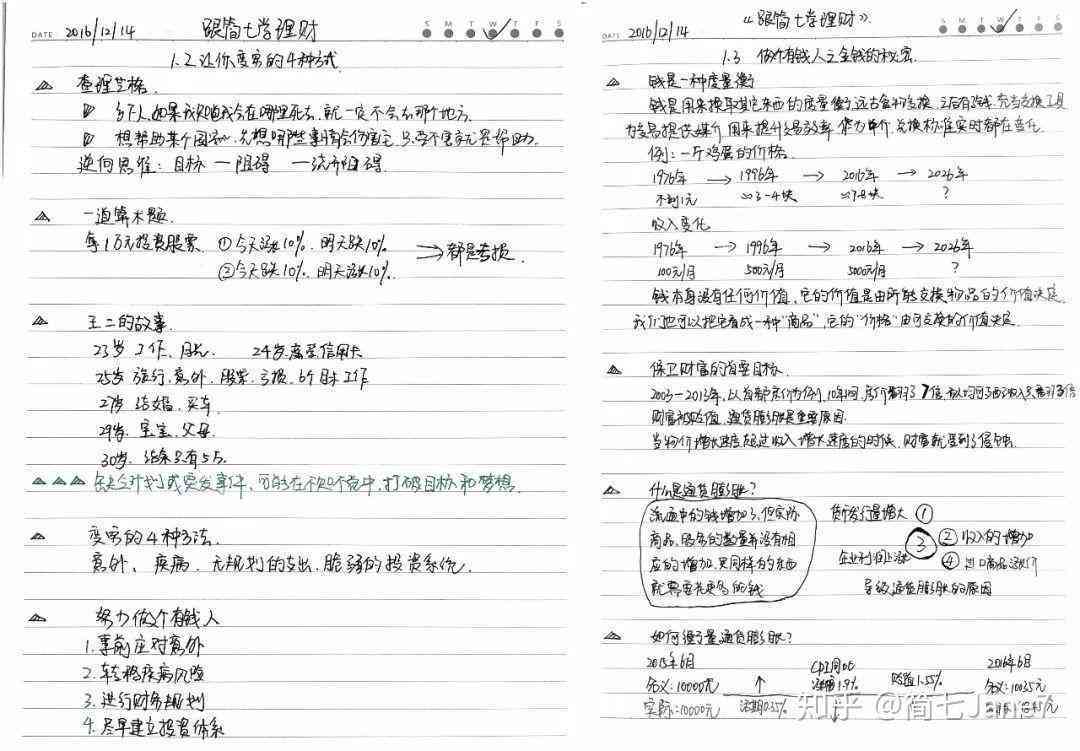 DATE 2016/12/14 跟简七学理财 S M T W T F S
1.2 让你变穷的4种方式
查理芒格
多下人,如果我知道我会在哪里死去,就一定不会去那个地方
想帮助某个国家,先想哪些事情会伤害它,只要不害它就是帮助
逆向思维:目标 — 阻碍 — 清除阻碍
一道算术题
每1万元投资股票 ①今天涨10%,明天跌10%
②今天跌10%,明天涨10%
→ 都是亏损
王二的故事
23岁 工作、月光 24岁 离家信用卡
25岁 旅行、意外、股票、亏损、6个月未工作
27岁 结婚、买车
29岁 宝宝、父母
30岁 结余只有5万
缺乏计划或突发事件,可能在不知不觉中,打破目标和梦想
变穷的4种方法
意外、疾病、无规划的支出、脆弱的投资系统
努力做个有钱人
1.事前应对意外
2.转移疾病风险
3.进行财务规划
4.尽早建立投资体系
DATE 2016/12/14 《跟简七学理财》 S M T W T F S
1.3 做个有钱人之金钱的秘密
钱是一种度量衡
钱是用来换取其它东西的度量衡,远古食物交换,之后有改变,充当交换工具
为交易提供媒介,用来提升交易效率,作为单价,兑换标准实时都在变化
例:一斤鸡蛋的价格
1976年 → 1996年 → 2016年 → 2026年
不到1元 ≈3-4块 ≈7-8块 ?
收入变化
1976年 → 1996年 → 2016年 → 2026年
100元/月 500元/月 5000元/月 ?
钱本身没有任何价值,它的价值是由所能交换物品的价值决定
我们也可以把它看成一种“商品”,它的“价格”由可交换的价值决定
保卫财富的首要目标
2003-2013年,以首都房价为例,10年间,房价翻了7倍
财富被贬值,通货膨胀是重要原因
当物价增长速度超过收入增长速度的时候,财富就遭到了侵蚀
什么是通货膨胀?
流通中的钱增加了,但实际
商品、服务的数量并没有相
应的增加,买同样的东西
就需要花更多的钱
货币发行量增大 ①
②收入的增加
企业利润上涨 ③
④进口商品涨价
导致通货膨胀的原因
如何衡量通货膨胀?
2015年6月 CPI同比 2016年6月
名义:10000元 ↑ 涨幅1.9% 贬值1.55% 名义:10035元
实际:10000元 活期0.35%
知乎 @简七Jane7